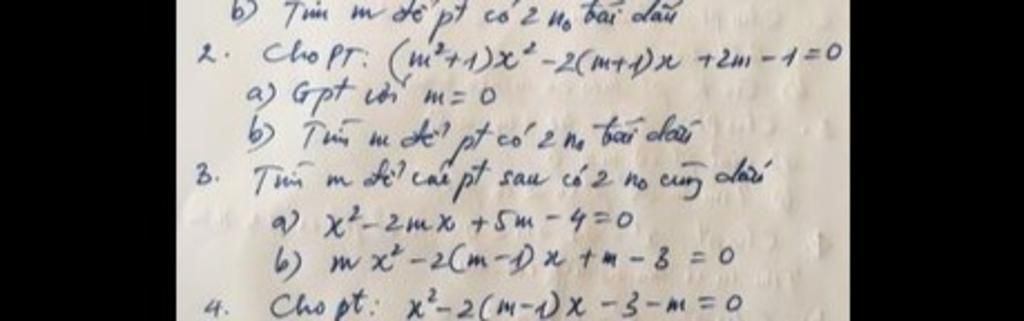 b) Tìm m để pt có 2 no trái dấu
2. Cho PT: (m²+1)x² -2(m+1)x +2m -1=0
a) Gpt với m=0
b) Tìm m để pt có 2 no trái dấu
3. Tìm m để các pt sau có 2 no cùng dấu
a) x²-2mx +5m -4=0
b) mx² -2(m-1)x +m -3 =0
4. Cho pt: x²-2(m-1)x -3-m=0